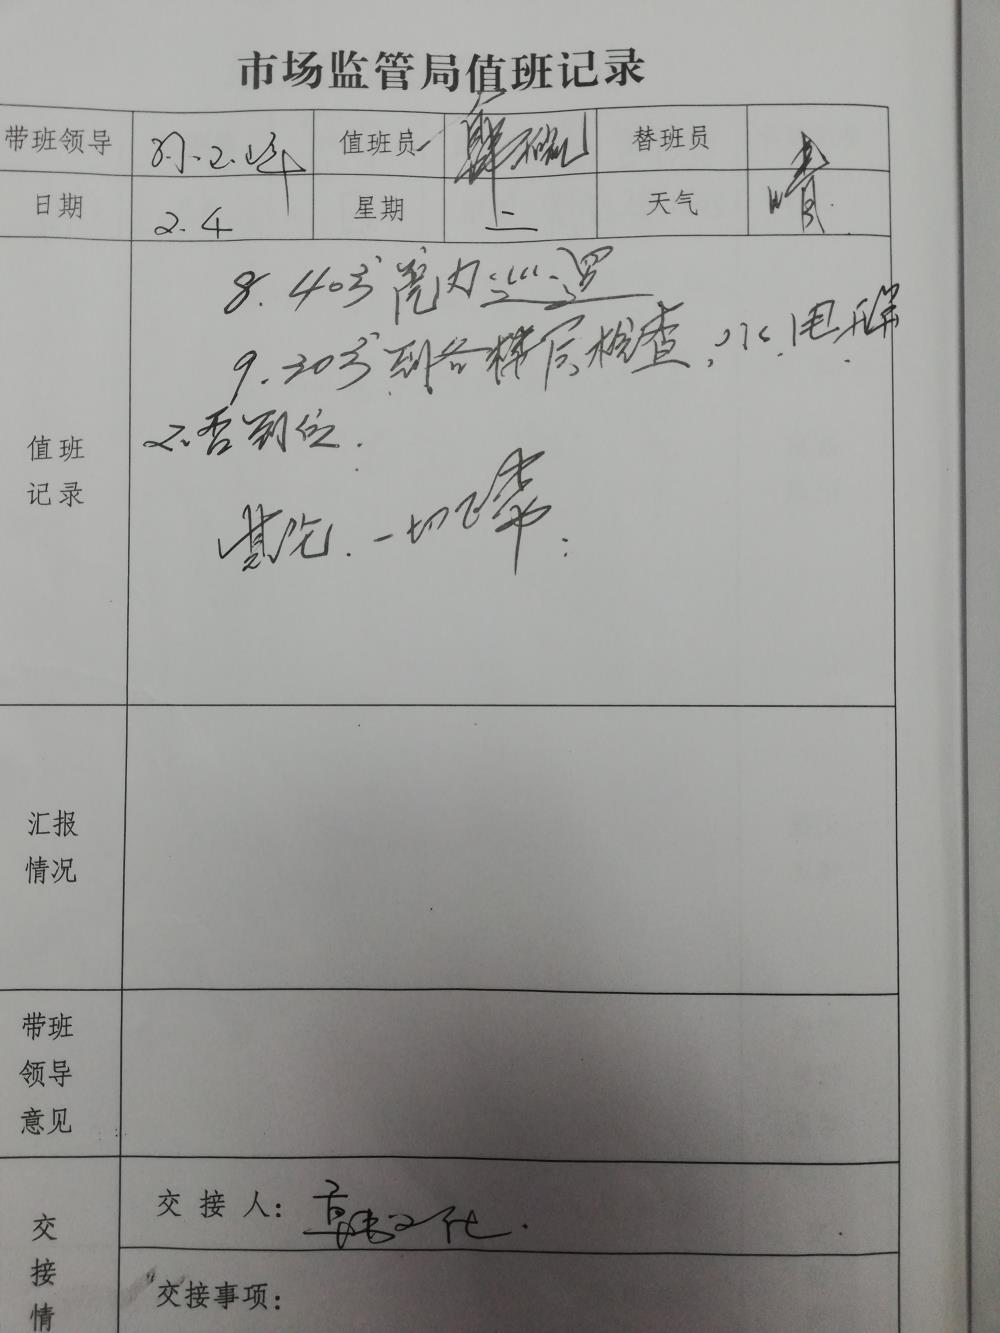 市场监管局值班记录
带班领导 值班员 替班员
日期 2.4 星期 二 天气 晴
8.40分院内巡逻
9.30分到各楼层检查,水.电.开
是否到位.
值班
记录
其它.一切正常.
汇报
情况
带班
领导
意见
交接人:
交接情
交接事项: